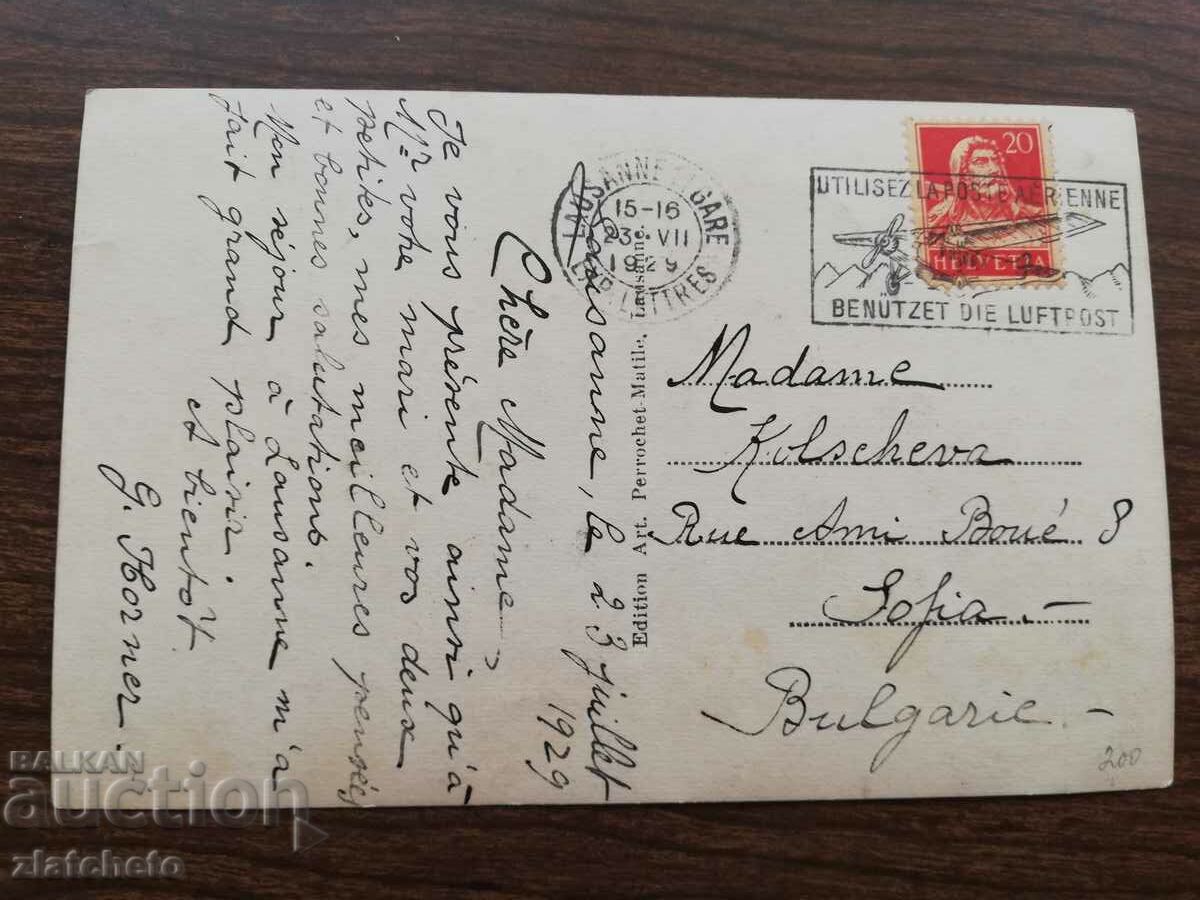 Lausanne, le 23 juillet
1929
Chère Madame,
Je vous présente ainsi qu'à
Mr votre mari et vos deux
petites, mes meilleures pensées
et bonnes salutations.
Mon séjour à Lausanne m'a
fait grand plaisir.
A bientôt.
G. Horner.
Edition Art. Perrochet-Matile, Lausanne.
LAUSANNE GARE
15-16
23·VII
1929
EXP. LETTRES
20
HELVETIA
UTILISEZ LA POSTE AÉRIENNE
BENÜTZET DIE LUFTPOST
Madame
Kolscheva
Rue Ami Boué 8
Sofia.-
Bulgarie.-
200
BALKAN
auction
zlatcheto